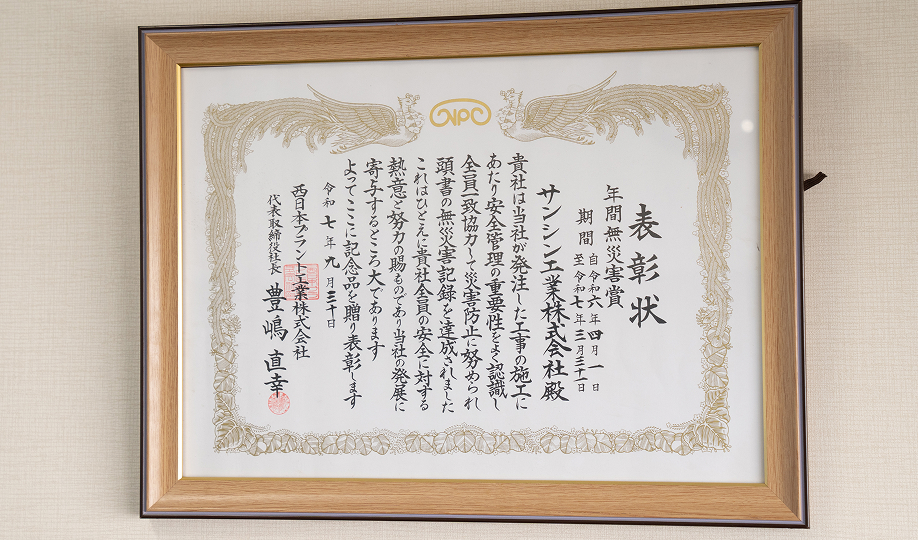 NPC
表彰状
年間無災害賞
期間 自令和六年四月一日
至令和七年三月三十一日
サンシン工業株式会社殿
貴社は当社が発注した工事の施工に
あたり安全管理の重要性をよく認識し
全員一致協力して災害防止に努められ
頭書の無災害記録を達成されました
これはひとえに貴社全員の安全に対する
熱意と努力の賜ものであり当社の発展に
寄与するところ大であります
よってここに記念品を贈り表彰します
令和七年九月三十日
西日本プラント工業株式会社
代表取締役社長 豊嶋直幸